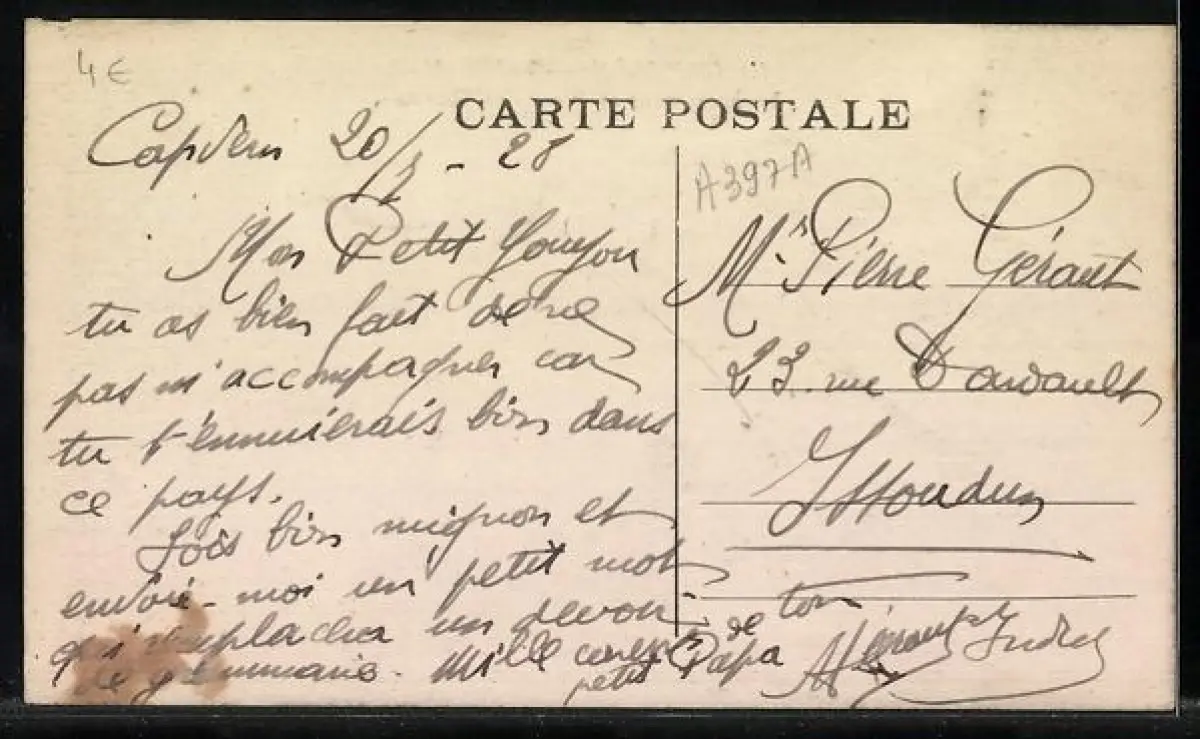 4€
CARTE POSTALE
A397A
Capvern 20/7 - 28
Mon Petit Youyou
tu as bien fait de ne
pas m'accompagner car
tu t'ennuierais bien dans
ce pays.
Sois bien mignon et
envoie-moi un petit mot
qui remplacera un devoir
de grammaire. Mille caresses de ton
petit Papa
Mr Pierre Gérault
23 rue Dardault
Issoudun
Indre